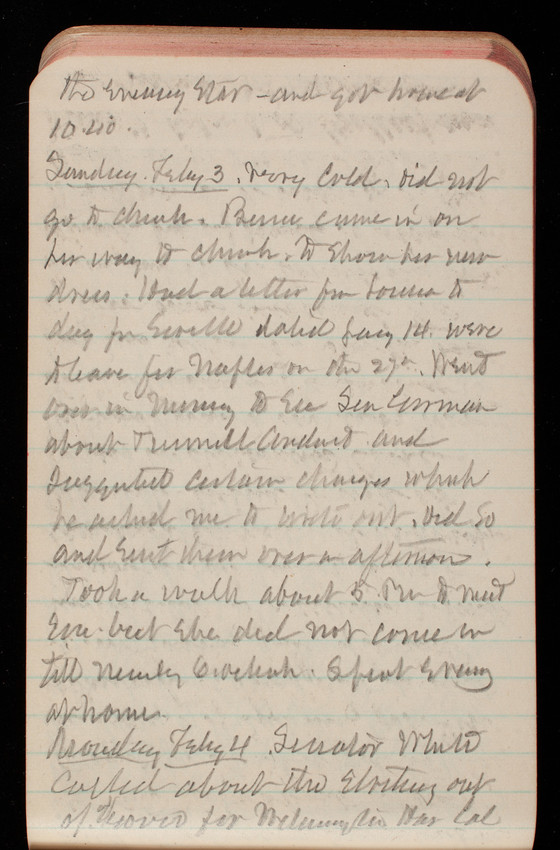 the Evening Star - and got home at
10.40.
Sunday. Feby 3. Very Cold. Did not
go to church. Bessie came in on
her way to church. to show her new
dress. Had a letter from Louisa to
day fm Seville dated Jany 14. were
to leave for Naples on the 27th. Went
over in morning to see Sen Gorman
about Tunnell Conduit and
suggested certain changes which
he asked me to write out. Did so
and sent them over in afternoon.
Took a walk about 5 PM to meet
Eva. but she did not come in
till nearly 6 oclock. Spent Evening
at home.
Monday Feby 4 Senator White
Called about the
of for Wilmington Har Cal